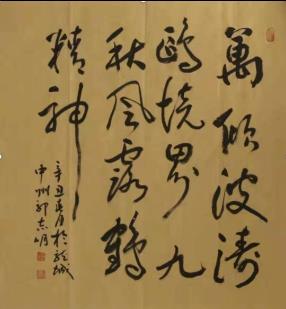 萬頃波濤
鷗境界九
秋風露鶴
精神
辛丑月於城
中州郭